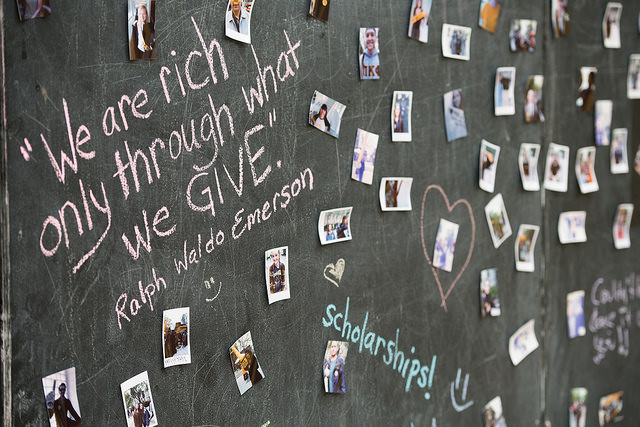 "We are rich
only through what
we GIVE."
Ralph Waldo Emerson
scholarships!